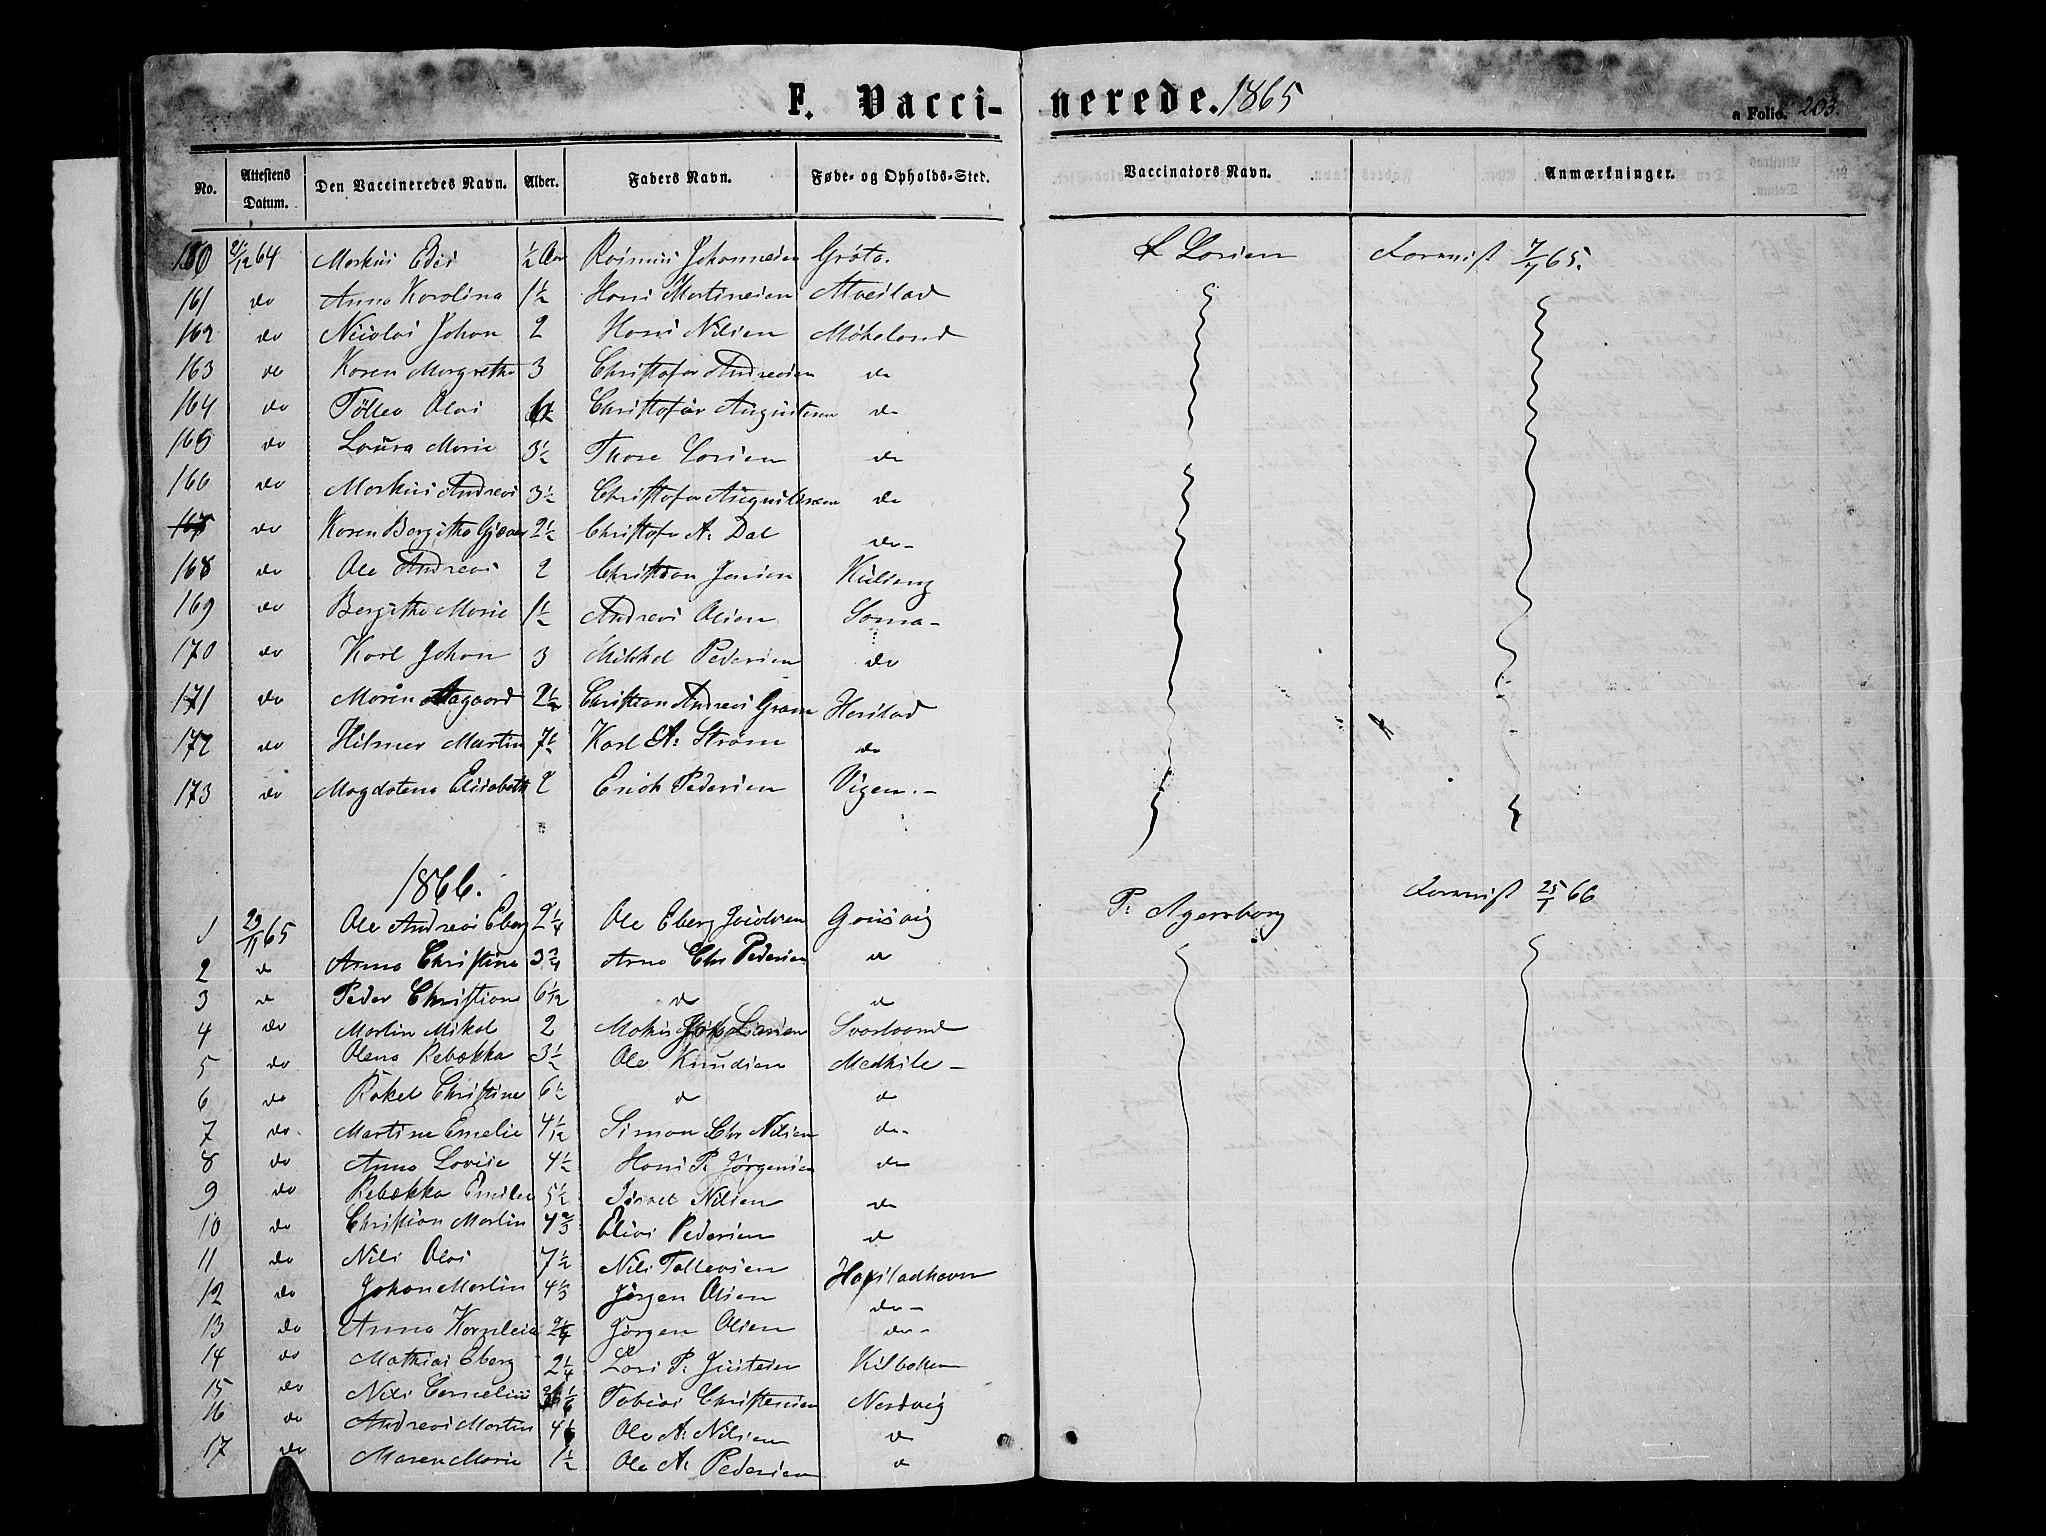 F. Vaccinerede. 1865
a Folio. 203.
No. Attestens Datum. Den Vaccineredes Navn. Alder. Faders Navn. Føde- og Opholds-Sted. Vaccinators Navn. Anmærkninger.
160 21/12 64 Markus Edis 1/2 Aar Rasmus Johannesen Grøta. L Larsen Fornuft 7/4 65.
161 do Anna Karolina 1 1/2 Hans Martinesen
162 do Nicolai Johan 2 Hans Nilsen Møkeland
163 do Karen Margrethe 3 Christofer Andreasen do
164 do Tølles Olai Christofer Augustesen do
165 do Laura Marie 3 1/2 Thore Larsen do
166 do Markus Andreas 3 1/2 Christofer Augustinsen do
167 do Karen Bergitha Gjæver 2 1/2 Christofer A. Dal do-
168 do Ole Andreas 2 Christian Jensen Kulseng
169 do Bergitha Marie 1 1/2 Andreas Olsen Sama-
170 do Karl Johan 3 Mikkel Pedersen do
171 do Maren Aagaard 2 1/2 Christian Andreas Gram Harstad
172 do Hilmer Martin 7 1/2 Karl A. Strøm do
173 do Magdalena Elisabeth 2 Erich Pedersen Vigen.-
1866.
1 23/11 65 Ole Andreas Eberg 2 1/4 Ole Eberg Gausvig P. Agersborg 25/1 66
2 d Anna Christine 3 3/4 Arne Chr Pedersen d
3 d Peder Christian 6 1/12 d d
4 do Martin Mikal 2 Mathis Joh Larsen
5 do Olena Rebekka 3 1/2 Ole Knudsen Medkile-
6 do Rakel Christine 6 1/2 d d
7 do. Martine Emelie 4 1/12 Simon Chr Nilsen do-
8 do Anna Lovise 4 1/2 Hans P. Jørgensen do
9 do Rebekka Emilie 5 1/2 Israel Nilsen do
10 do Christian Martin 4 2/3 Elias Pedersen do
11 do Nils Olai 7 1/2 Nils Tollevsen Harstadhavn
12 do Johan Martin 4 1/3 Jørgen Olsen do-
13 do Anna Kornelia Jørgen Olsen do-
14 do Mathias Eberg 2 1/4 Lars P. Justesen Kilbotten
15 do Nils Cornelius Tobias Christensen Nordvig
16 do Andreas Martin Ole A. Nilsen d
17 do Maren Marie 1 1/2 Ole A. Pedersen d